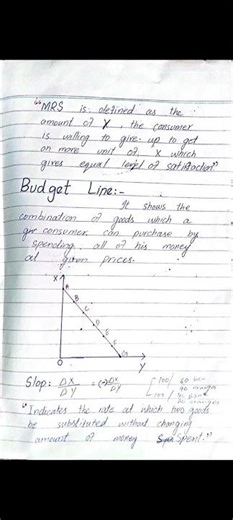 "MRS is defined as the
amount of X, the consumer
is willing to give up to get
on more unit of X which
gives equal level of satisfaction"
Budget Line:-
It shows the
combination of goods which a
consumer can purchase by
spending all of his money
at given prices.
X
A
B
C
D
E
F
G
O
Y
Slop: ΔX/ΔY = (-)ΔX/ΔY
"Indicates the rate at which two goods
be substituted without changing
amount of money Spent."